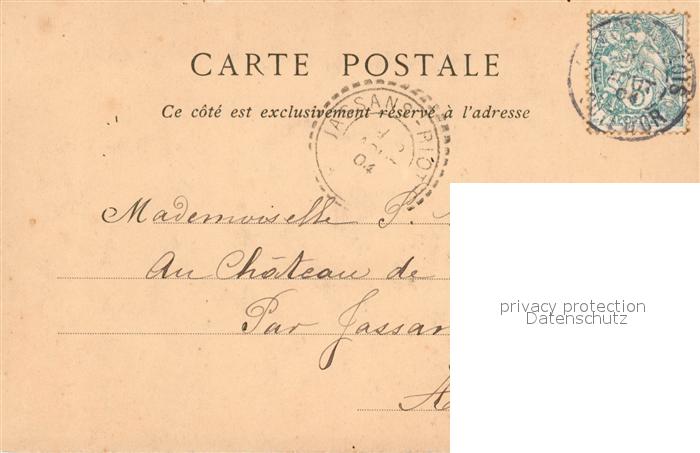 CARTE POSTALE
Ce côté est exclusivement réservé à l'adresse
JASSANS-RIOTT
04
D'OR
Mademoiselle P.
Au Château de
Par Jassan
A
privacy protection
Datenschutz